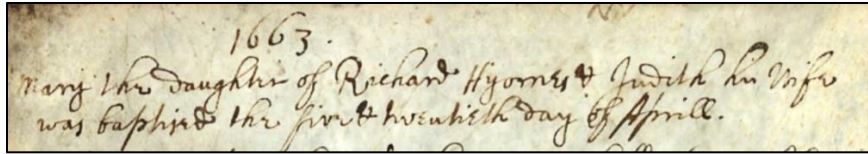 1663.
Mary the daughter of Richard Hyornes & Judith his Wife
was baptized the five & twentieth day of Aprill.